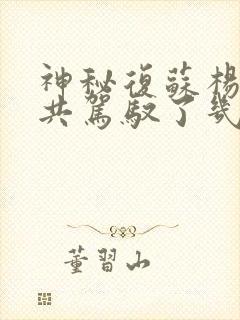 神秘復蘇楊
共駕馭了幾
董習山